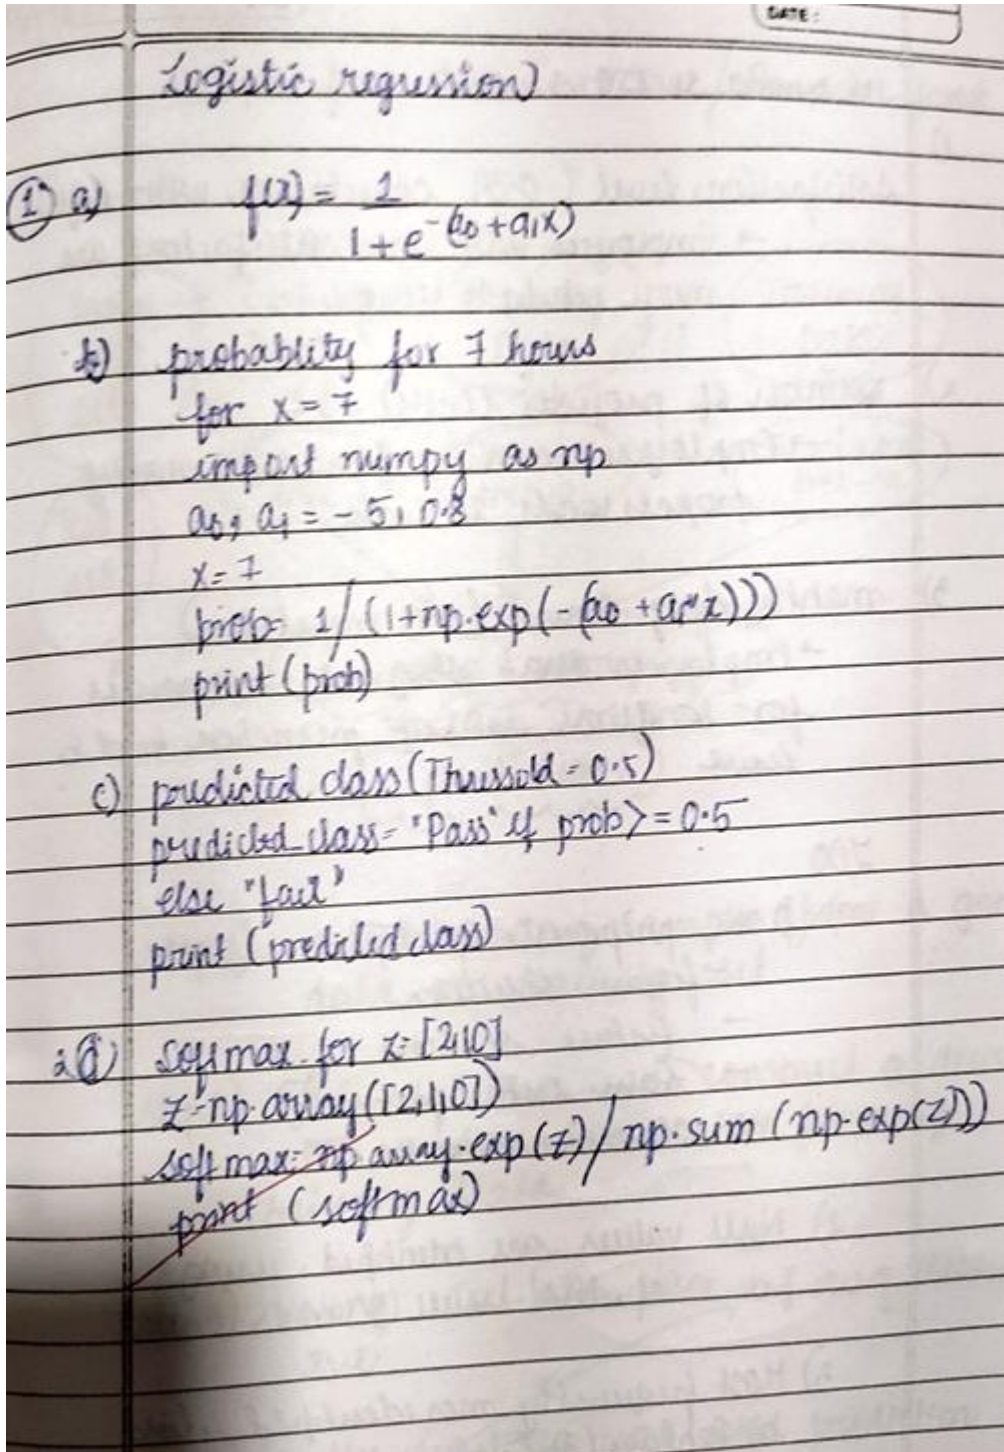 DATE:
Logistic regression
1 a) f(x) = 1
1 + e^-(a0 + a1x)
b) probablity for 7 hours
for x = 7
import numpy as np
a0, a1 = -5, 0.8
x = 7
prob= 1/(1+np.exp(-(a0 + a1*x)))
print (prob)
c) predicted class (Thressold = 0.5)
predicted_class= "Pass" if prob>=0.5
else "fail"
print (predicted_class)
2 a) Softmax for z= [2,1,0]
z=np.array([2,1,0])
softmax= np.array.exp(z)/np.sum(np.exp(z)))
print (softmax)